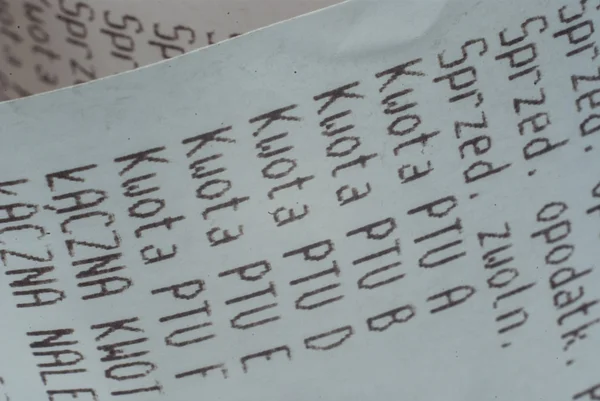 Sprzed. op
Sprzed. opodatk. P
Sprzed. zwoln.
Kwota PTU A
Kwota PTU B
Kwota PTU D
Kwota PTU E
Kwota PTU F
ŁĄCZNA KWOT
ŁĄCZNA NALE